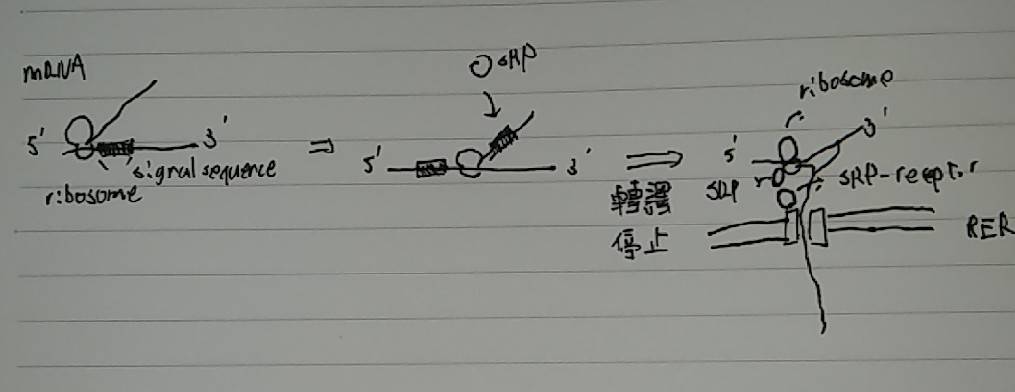 mRNA
5' 3'
signal sequence
ribosome
⇒
SRP
5' 3'
⇒
轉譯
停止
ribosome
5' 3'
SRP
SRP-reeptor
RER